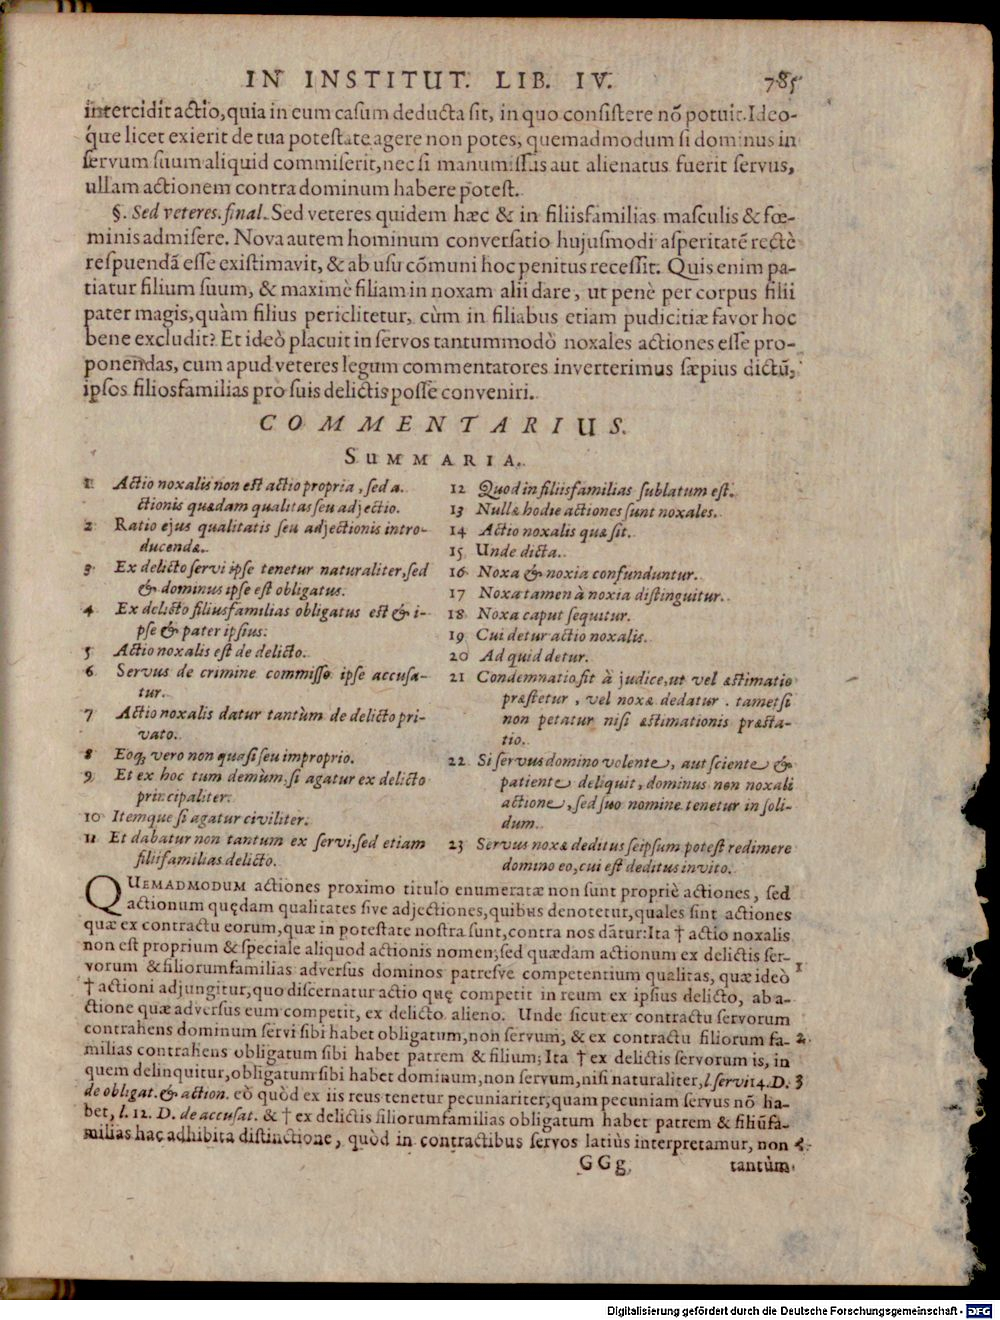 IN INSTITUT. LIB. IV. 785
intercidit actio, quia in eum casum deducta sit, in quo consistere nõ potuit. Ideo-
q́ue licet exierit de tua potestate agere non potes, quemadmodum si dominus in
servum suum aliquid commiserit, nec si manumissus aut alienatus fuerit servus,
ullam actionem contra dominum habere potest.
§. Sed veteres. final. Sed veteres quidem hæc & in filiisfamilias masculis & fœ-
minis admisere. Nova autem hominum conversatio hujusmodi asperitatẽ rectè
respuendã esse existimavit, & ab usu cõmuni hoc penitus recessit. Quis enim pa-
tiatur filium suum, & maximè filiam in noxam alii dare, ut penè per corpus filii
pater magis, quàm filius periclitetur, cùm in filiabus etiam pudicitiæ favor hoc
bene excludit? Et ideò placuit in servos tantummodò noxales actiones esse pro-
ponendas, cum apud veteres legum commentatores inverterimus sæpius dictũ,
ipsos filiosfamilias pro suis delictis posse conveniri.
COMMENTARIUS.
SUMMARIA.
1 Actio noxalis non est actio propria, sed a-
ctionis quædam qualitas seu adjectio.
2 Ratio ejus qualitatis seu adjectionis intro-
ducendæ.
3 Ex delicto servi ipse tenetur naturaliter, sed
& dominus ipse est obligatus.
4 Ex delicto filiusfamilias obligatus est & i-
pse & pater ipsius.
5 Actio noxalis est de delicto.
6 Servus de crimine commisso ipse accusa-
tur.
7 Actio noxalis datur tantùm de delicto pri-
vato.
8 Eoq; vero non quasi seu improprio.
9 Et ex hoc tum demùm, si agatur ex delicto
principaliter.
10 Itemque si agatur civiliter.
11 Et dabatur non tantum ex servi, sed etiam
filiifamilias delicto.
12 Quod in filiisfamilias sublatum est.
13 Nullæ hodie actiones sunt noxales.
14 Actio noxalis quæ sit.
15 Unde dicta.
16 Noxa & noxia confunduntur.
17 Noxa tamen à noxia distinguitur.
18 Noxa caput sequitur.
19 Cui detur actio noxalis.
20 Ad quid detur.
21 Condemnatio fit à judice, ut vel æstimatio
præstetur, vel noxæ dedatur. tametsi
non petatur nisi æstimationis præsta-
tio.
22 Si servus domino volente, aut sciente &
patiente deliquit, dominus non noxali
actione, sed suo nomine tenetur in soli-
dum.
23 Servus noxæ deditus seipsum potest redimere
domino eo, cui est deditus invito.
QUEMADMODUM actiones proximo titulo enumeratæ non sunt propriè actiones, sed
actionum quędam qualitates sive adjectiones, quibus denotetur, quales sint actiones
quæ ex contractu eorum, quæ in potestate nostra sunt, contra nos dãtur: Ita † actio noxalis
non est proprium & speciale aliquod actionis nomen; sed quædam actionum ex delictis ser-
vorum & filiorumfamilias adversus dominos patresve competentium qualitas, quæ ideò 1
† actioni adjungitur, quo discernatur actio quę competit in reum ex ipsius delicto, ab a-
ctione quæ adversus eum competit, ex delicto alieno. Unde sicut ex contractu servorum
contrahens dominum servi sibi habet obligatum, non servum, & ex contractu filiorum fa- 2
milias contrahens obligatum sibi habet patrem & filium; Ita † ex delictis servorum is, in
quem delinquitur, obligatum sibi habet dominum, non servum, nisi naturaliter, l. servi 14. D. 3
de obligat. & action. eò quòd ex iis reus tenetur pecuniariter; quam pecuniam servus nõ ha-
bet, l. 12. D. de accusat. & † ex delictis filiorumfamilias obligatum habet patrem & filiũfa-
milias hac adhibita distinctione, quòd in contractibus servos latiùs interpretamur, non 4
GGg tantùm
Digitalisierung gefördert durch die Deutsche Forschungsgemeinschaft - DFG